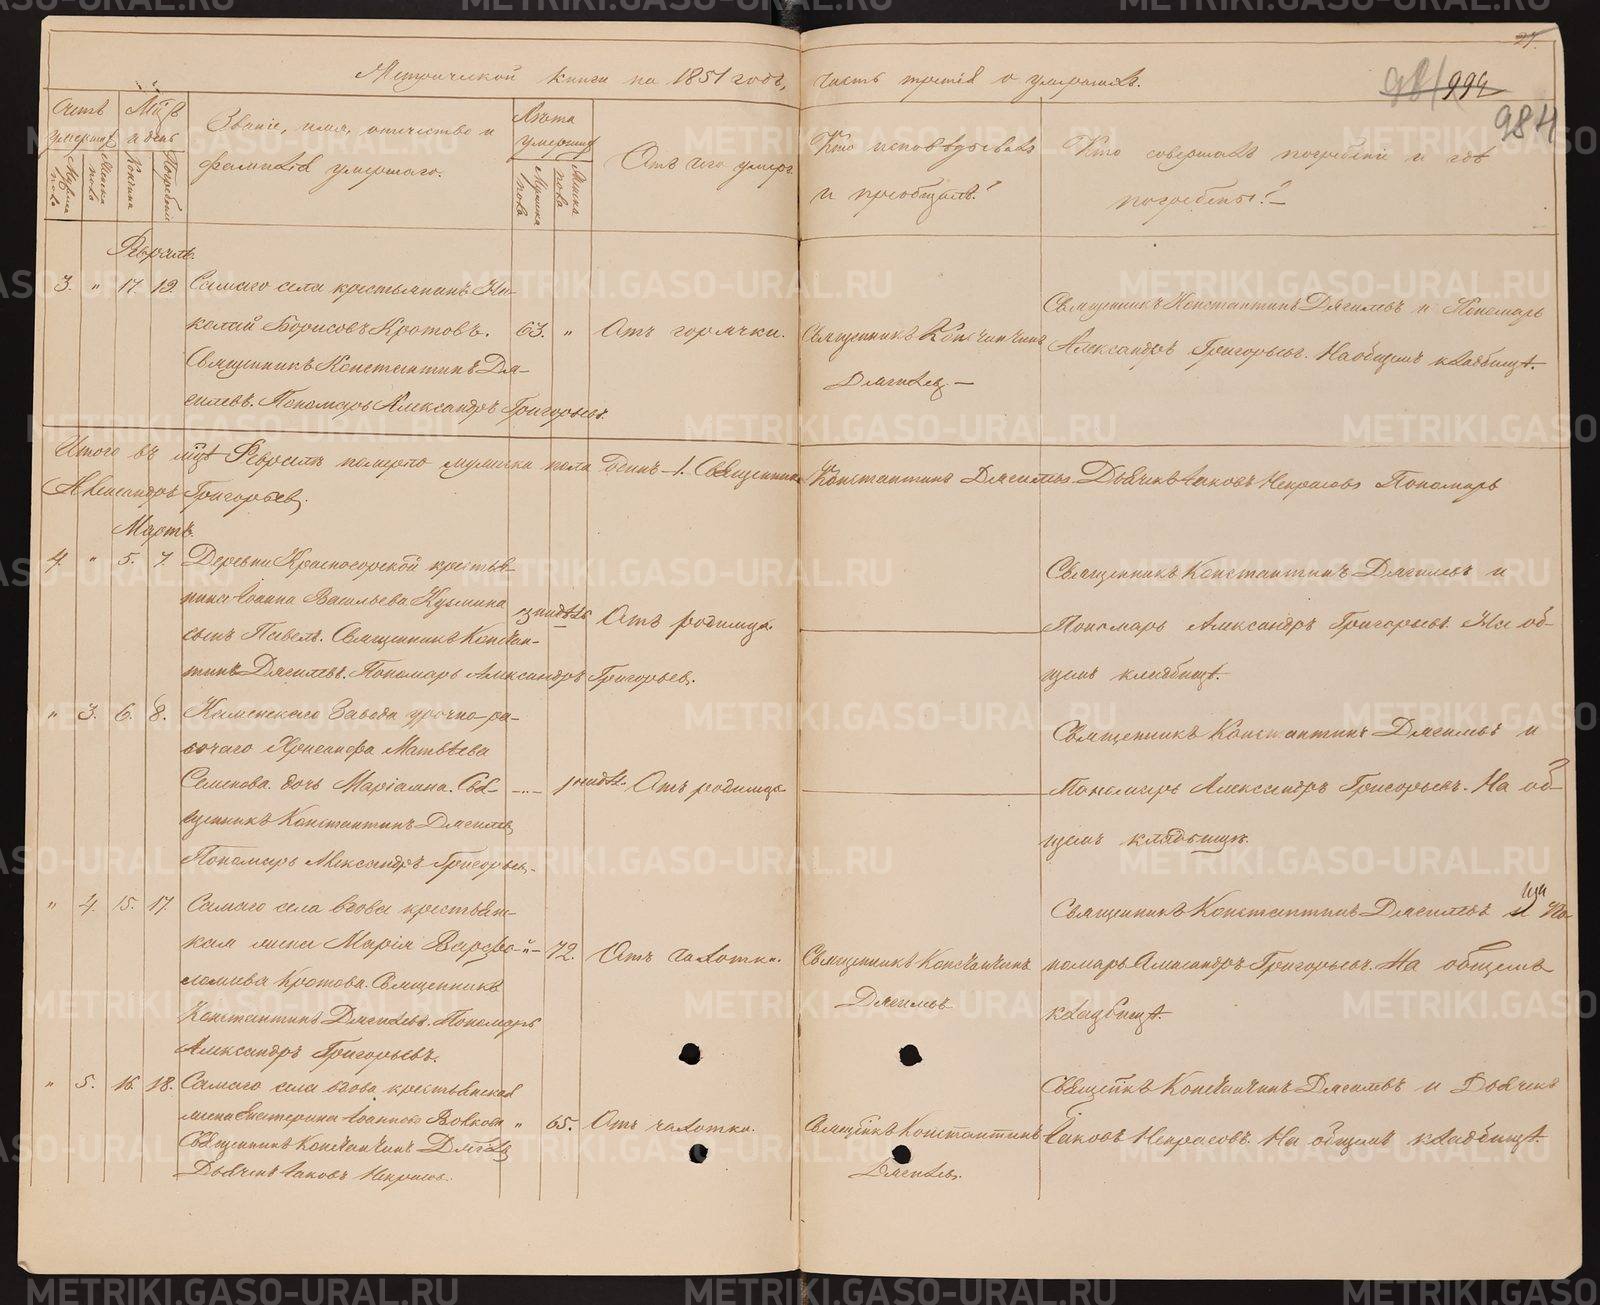 27.
Метрической книги на 1851 годъ, часть третія о умершихъ.
981 992
984
Счетъ умершихъ
Мужска пола
Женска пола
Мцъ и день
Кончины
Погребенія
Званіе, имя, отчество и
фамилія умершаго.
Лѣта умершихъ
Мужска пола
Женска пола
Отъ чего умеръ.
Кто исповѣдывалъ
и пріобщалъ?
Кто совершалъ погребеніе и гдѣ
погребены?
Февраль.
3. " 17. 19. Самаго села крестьянинъ Ни-
колай Борисовъ Кротовъ. 63. " Отъ горячки.
Священникъ Константинъ Дя-
гилевъ. Пономарь Александръ Григорьевъ.
Священникъ Константинъ
Дягилевъ.
Священникъ Константинъ Дягилевъ и Пономарь
Александръ Григорьевъ. На общемъ кладбищѣ.
Итого въ мцѣ Февралѣ померло мужска пола одинъ - 1. Священникъ Константинъ Дягилевъ Дьячекъ Іаковъ Некрасовъ Пономарь
Александръ Григорьевъ.
Мартъ.
4. " 5. 7. Деревни Красногорской крестья-
нина Іоанна Васильева Кузмина
сынъ Павелъ. Священникъ Констан-
тинъ Дягилевъ. Пономарь Александръ Григорьевъ.
недѣль Отъ родимца.
Священникъ Константинъ Дягилевъ и
Пономарь Александръ Григорьевъ. На об-
щемъ кладбищѣ.
" 3. 6. 8. Каменскаго Завода урочно-ра-
бочаго Матвѣева
Семенова. дочь Маріамна. Свя-
щенникъ Константинъ Дягилевъ
Пономарь Александръ Григорьевъ.
Отъ родимца
Священникъ Константинъ Дягилевъ и
Пономарь Александръ Григорьевъ. На об-
щемъ кладбищѣ.
" 4. 15. 17. Самаго села вдова крестьян-
кая жена Марія Варѳо-
ломѣева Кротова. Священникъ
Константинъ Дягилевъ. Пономарь
Александръ Григорьевъ.
72. Отъ чахотки.
Священникъ Константинъ
Дягилевъ
Священникъ Константинъ Дягилевъ и По-
номарь Александръ Григорьевъ. На общемъ
кладбищѣ.
" 5. 16. 18. Самаго села вдова крестьянская
жена Екатерина Іоаннова Волкова " 65. Отъ чахотки.
Священникъ Константинъ Дягилевъ
Дьячекъ Іаковъ Некрасовъ.
Священникъ Константинъ
Дягилевъ.
Священникъ Константинъ Дягилевъ и Дьячекъ
Іаковъ Некрасовъ. На общемъ кладбищѣ.
METRIKI.GASO-URAL.RU